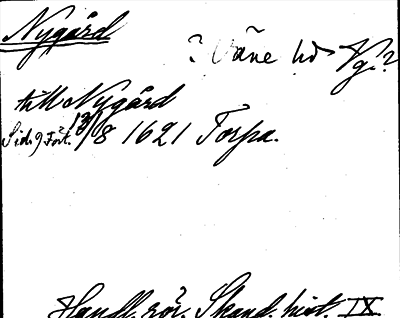 Nygård
? Väne hd Vg.?
till Nygård
Sid. 9 Fört. 13/8 1621 Torpa.
Handl. rör. Skand. hist. IX